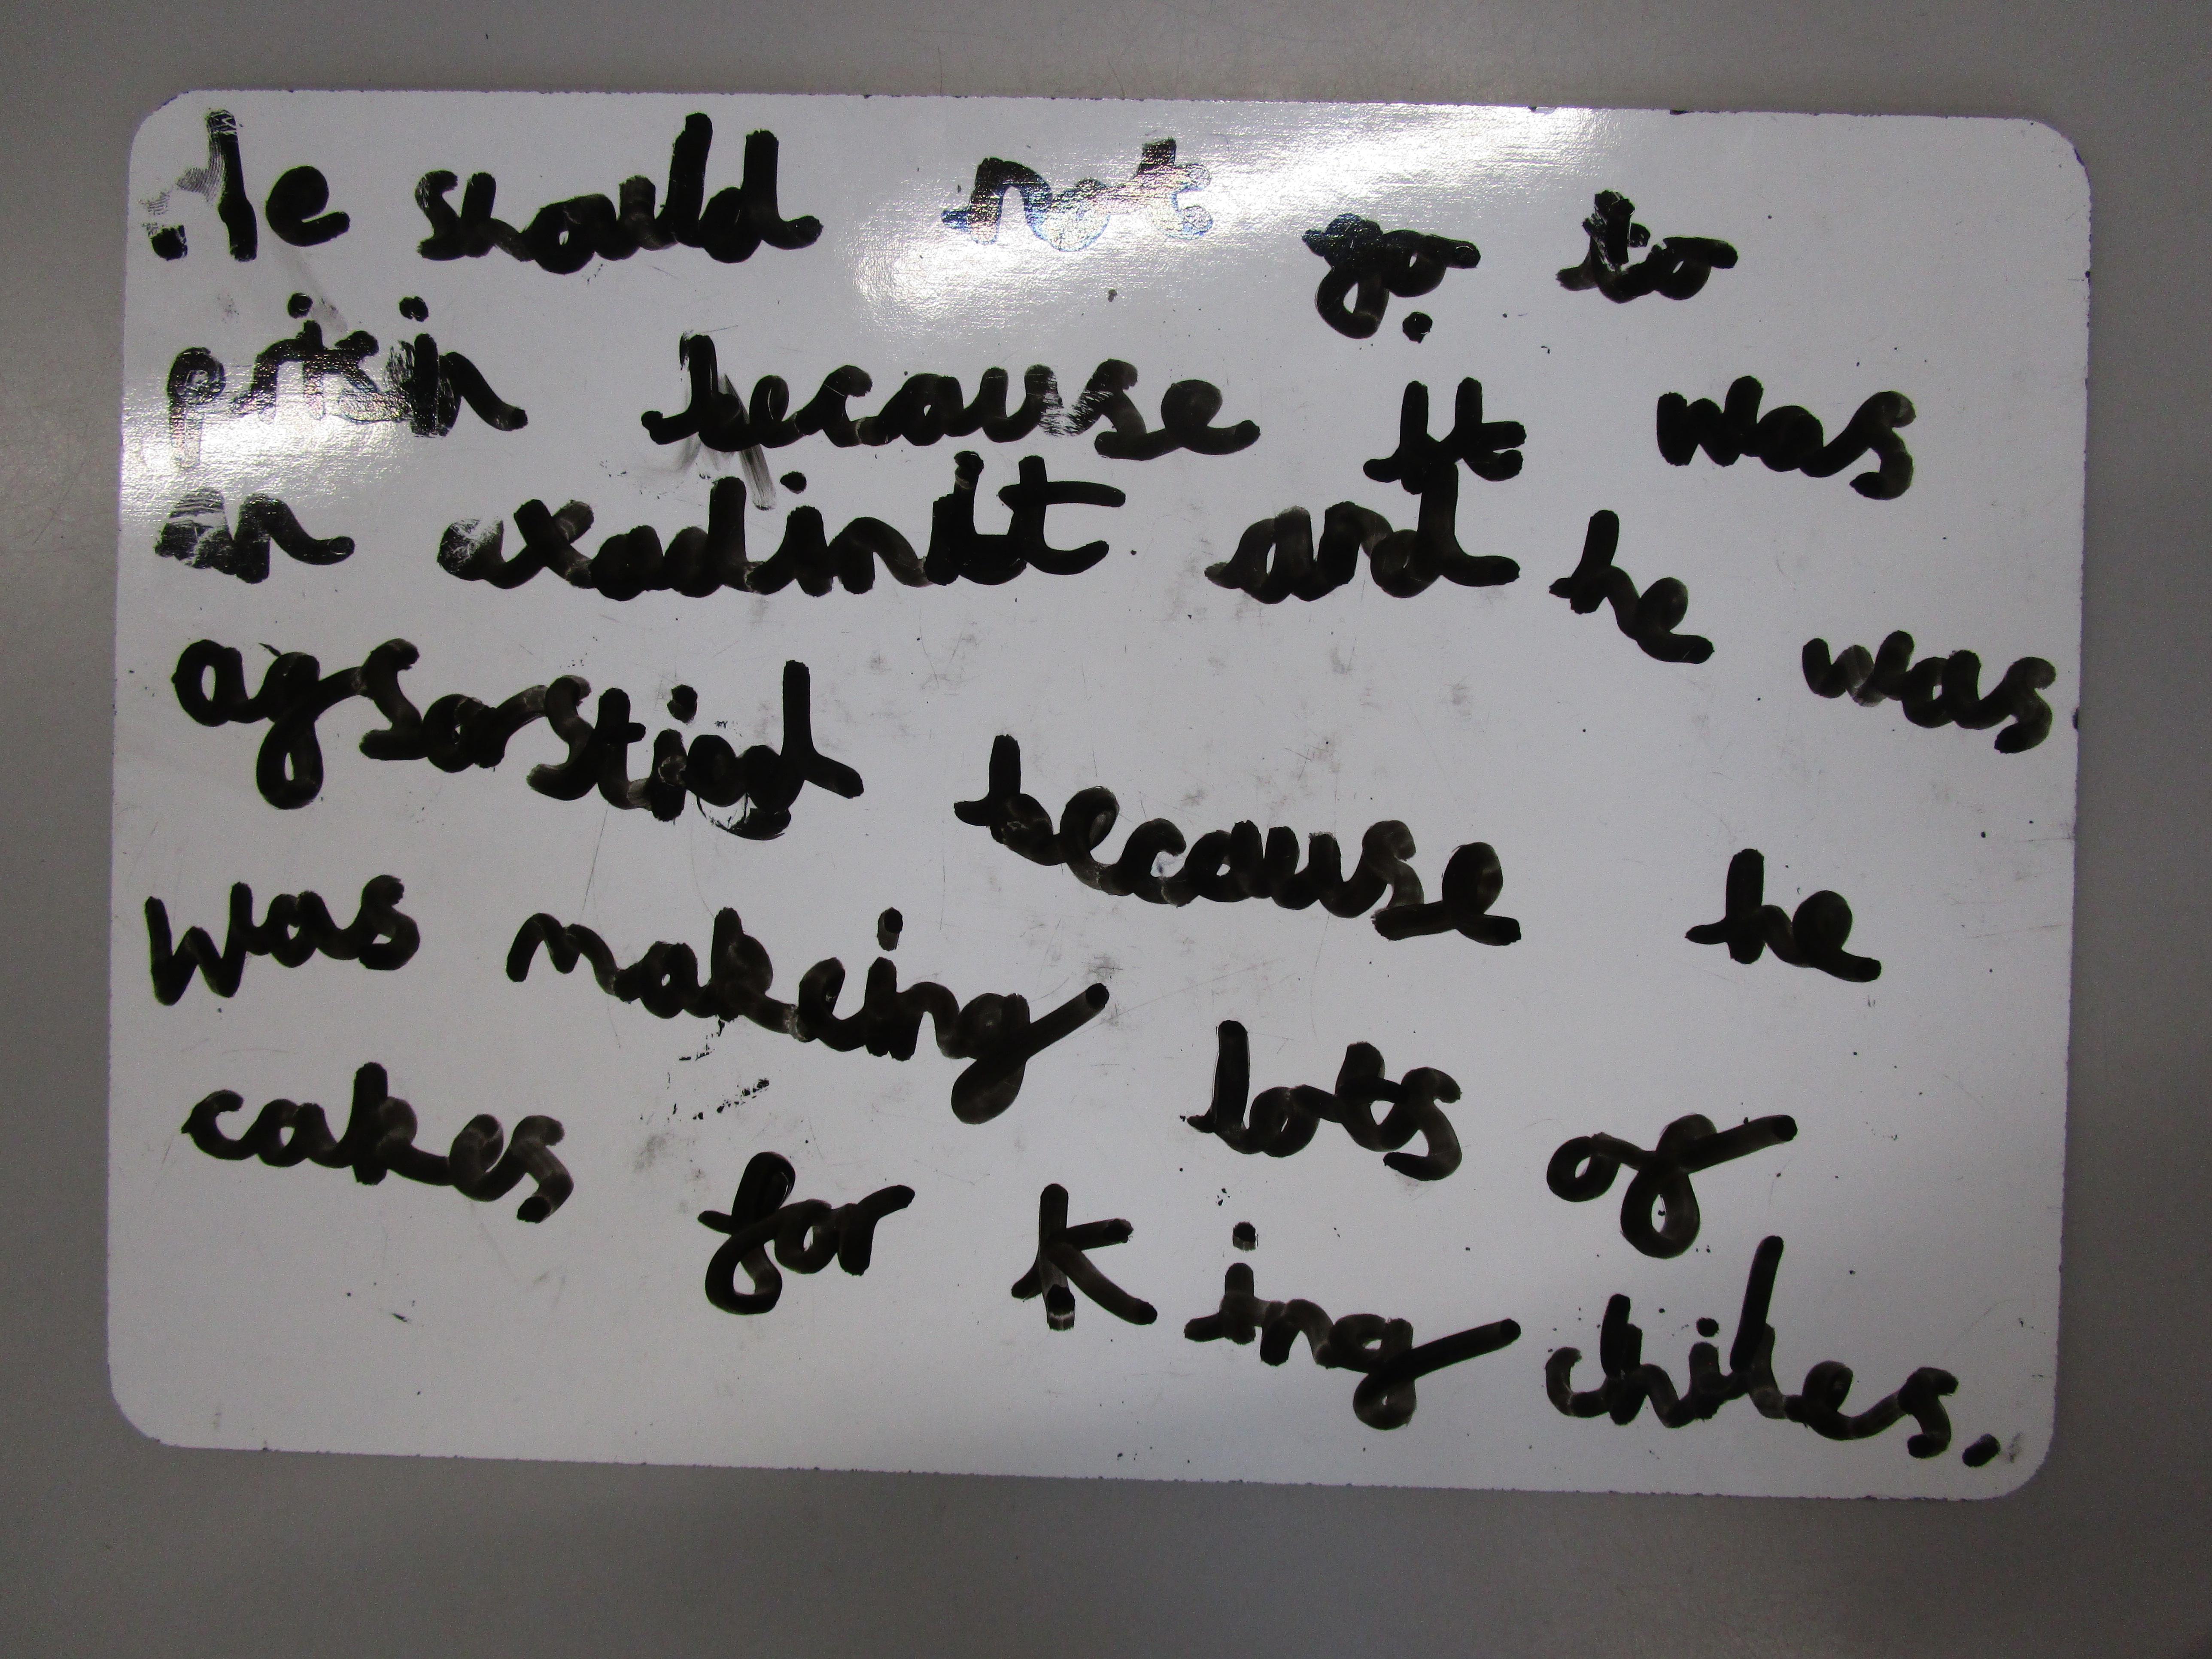 He should not go to
prisin because it was
an axadintt and he was
agsorstied because he
was makeing lots of
cakes for King chiles.